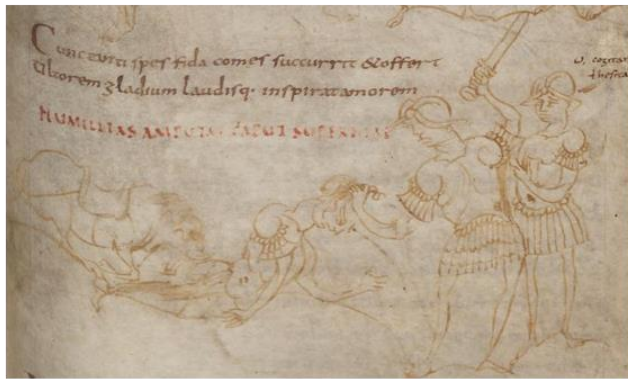 Cunctanti spes fida comes succurrit & offert
Ultorem gladium laudisq. inspirat amorem
HUMILITAS AMPUTAT CAPUT SUPERBIAE